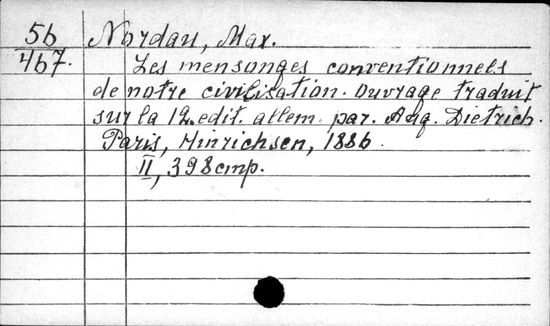 56
467.
Nordau, Max.
Les mensonges conventionnels
de notre civilisation. Ouvrage traduit
sur la 12. edit. allem. par. Aug. Dietrich.
Paris, Hinrichsen, 1886.
II, 398 cmp.